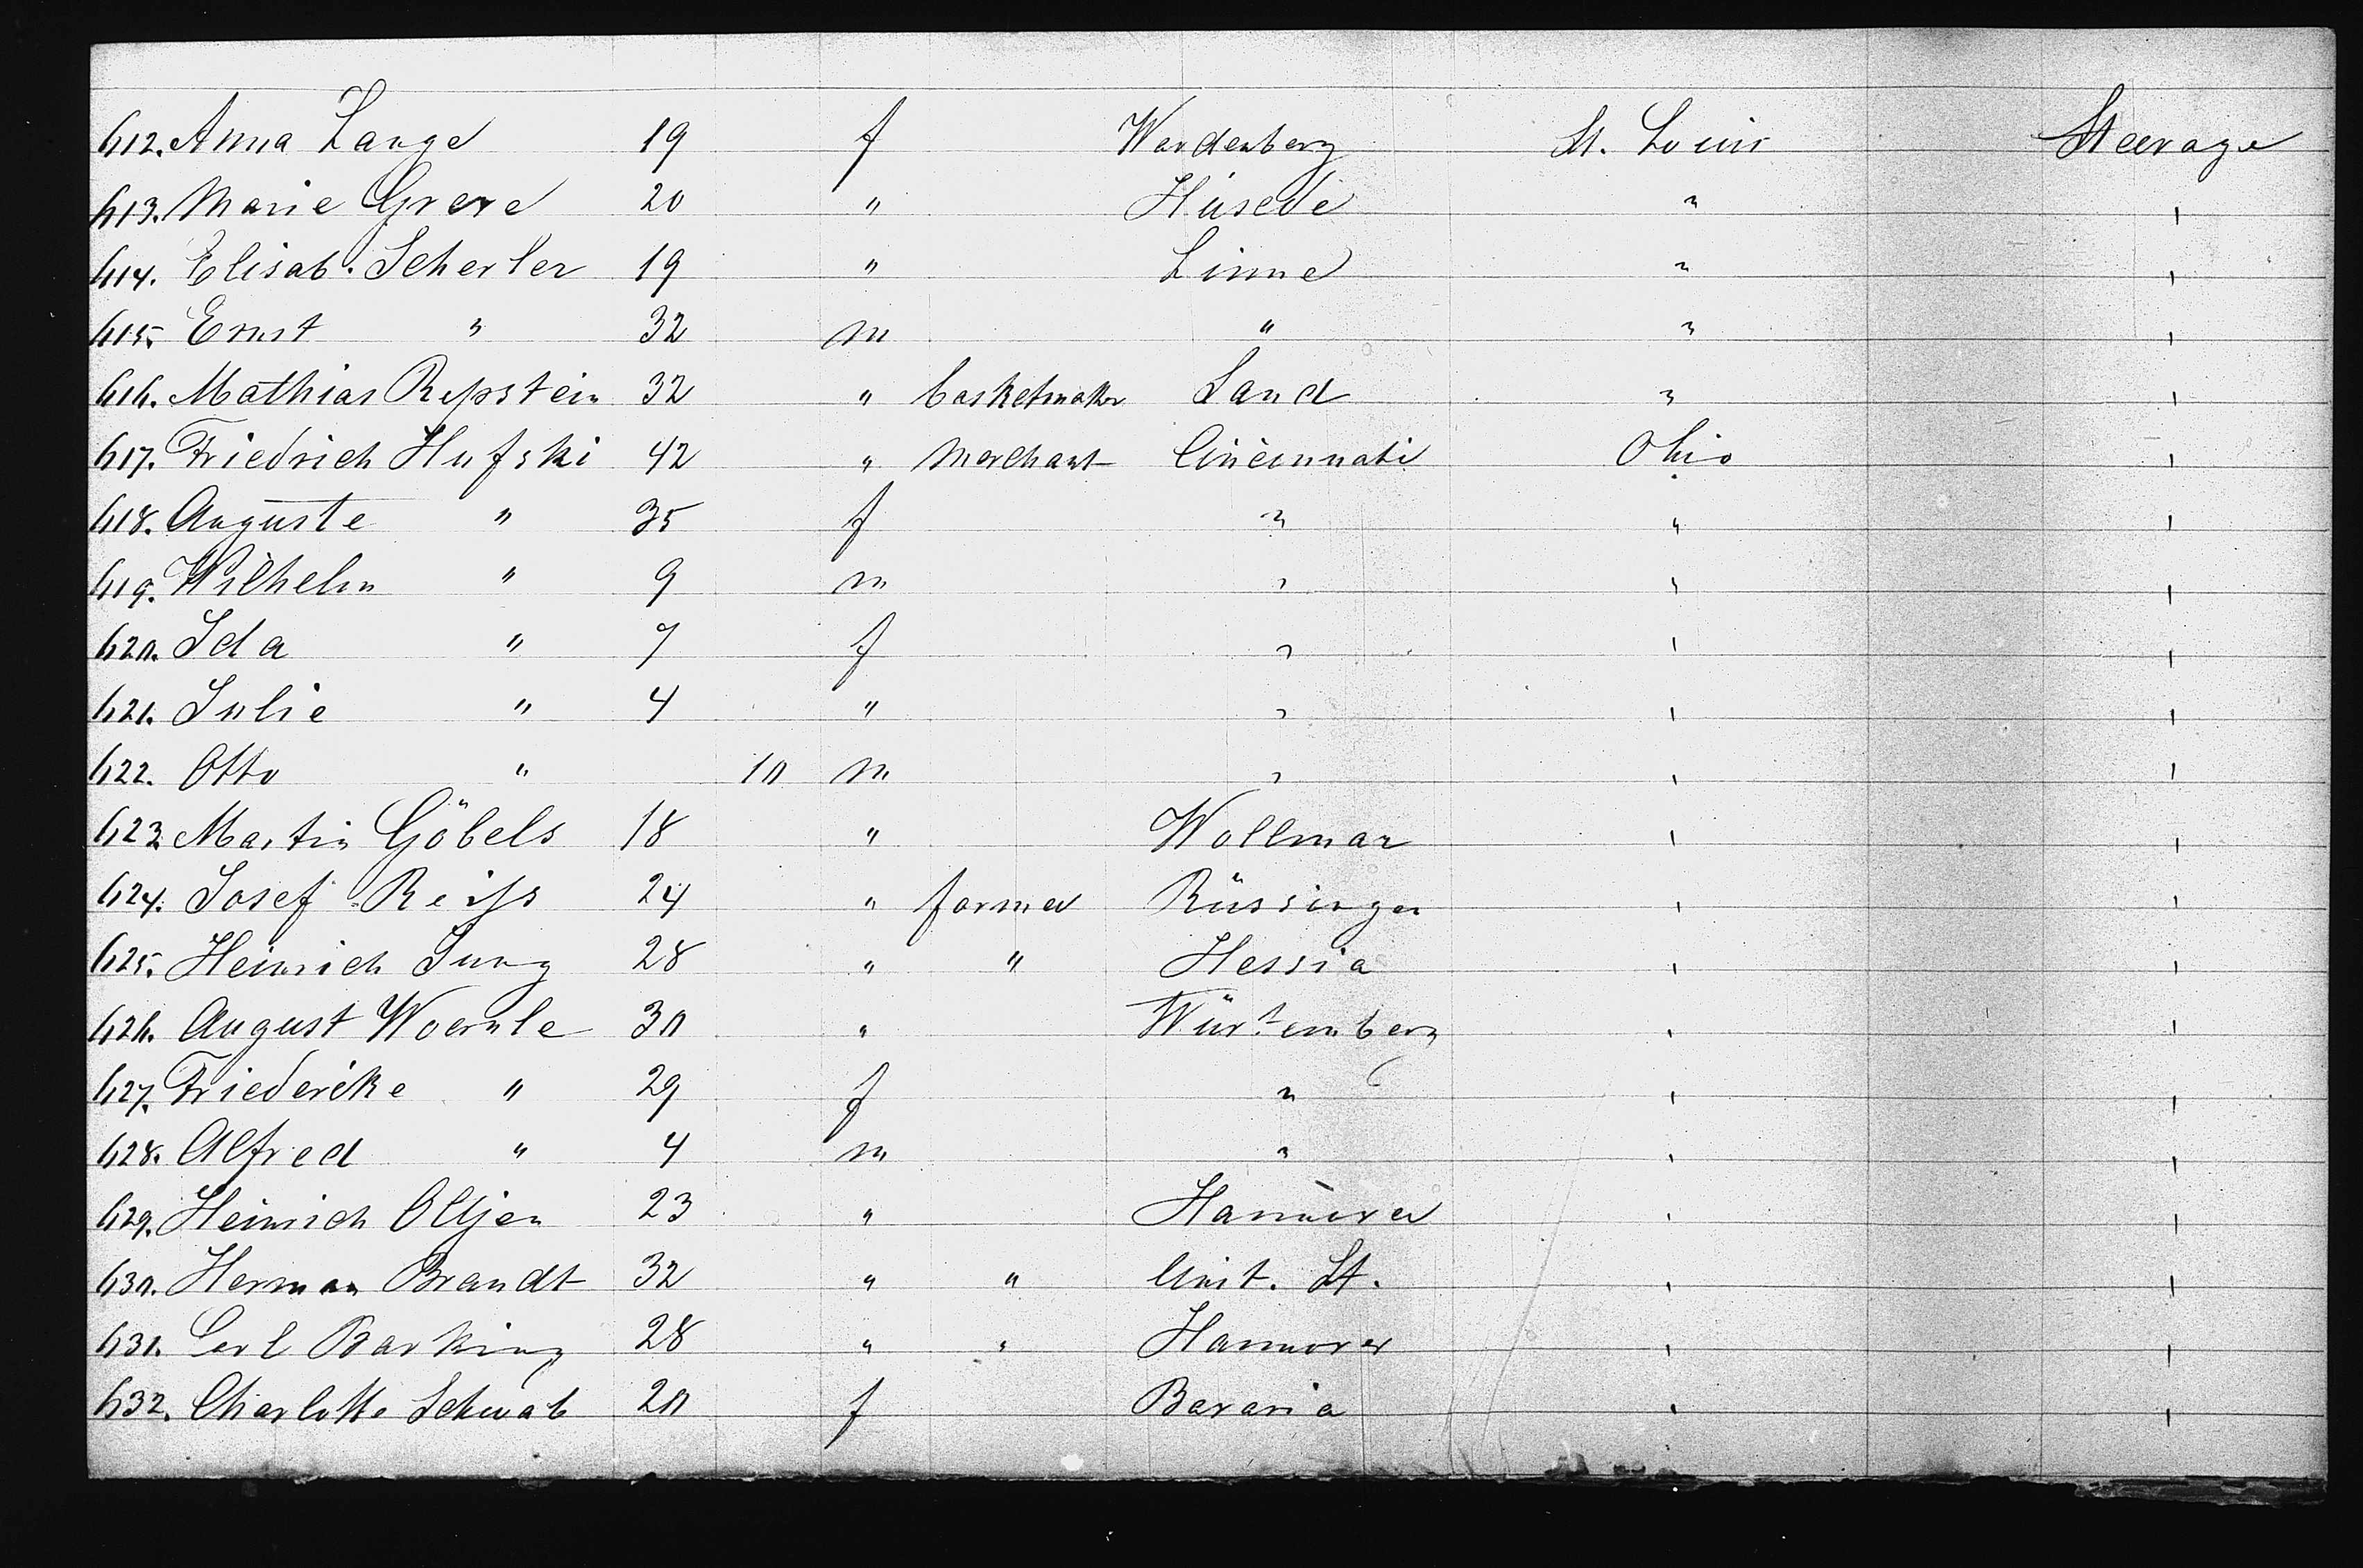 612. Anna Lange 19 f Werdenberg St. Louis Steerage
613. Marie Greve 20 " Hüsede " "
614. Elisab. Scherler 19 " Linne " "
615. Ernst " 32 m " " "
616. Mathias Repstein 32 " basketmaker Sand " "
617. Friedrich Hufski 42 " Merchant Cincinnati Ohio "
618. Auguste " 35 f " " "
619. Wilhelm " 9 m " " "
620. Ida " 7 f " " "
621. Julie " 4 " " " "
622. Otto " 10 m " " "
623. Martin Göbels 18 " Wollmar " "
624. Josef Reiss 24 " farmer Rüssingen " "
625. Heinrich Jung 28 " " Hessia " "
626. August Woernle 30 " Würtemberg " "
627. Friedericke " 29 f " " "
628. Alfred " 4 m " " "
629. Heinrich Oltjen 23 " Hannover " "
630. Herman Brandt 32 " " Unit. St. " "
631. Carl Barking 28 " " Hannover " "
632. Charlotte Schwab 20 f Bavaria " "